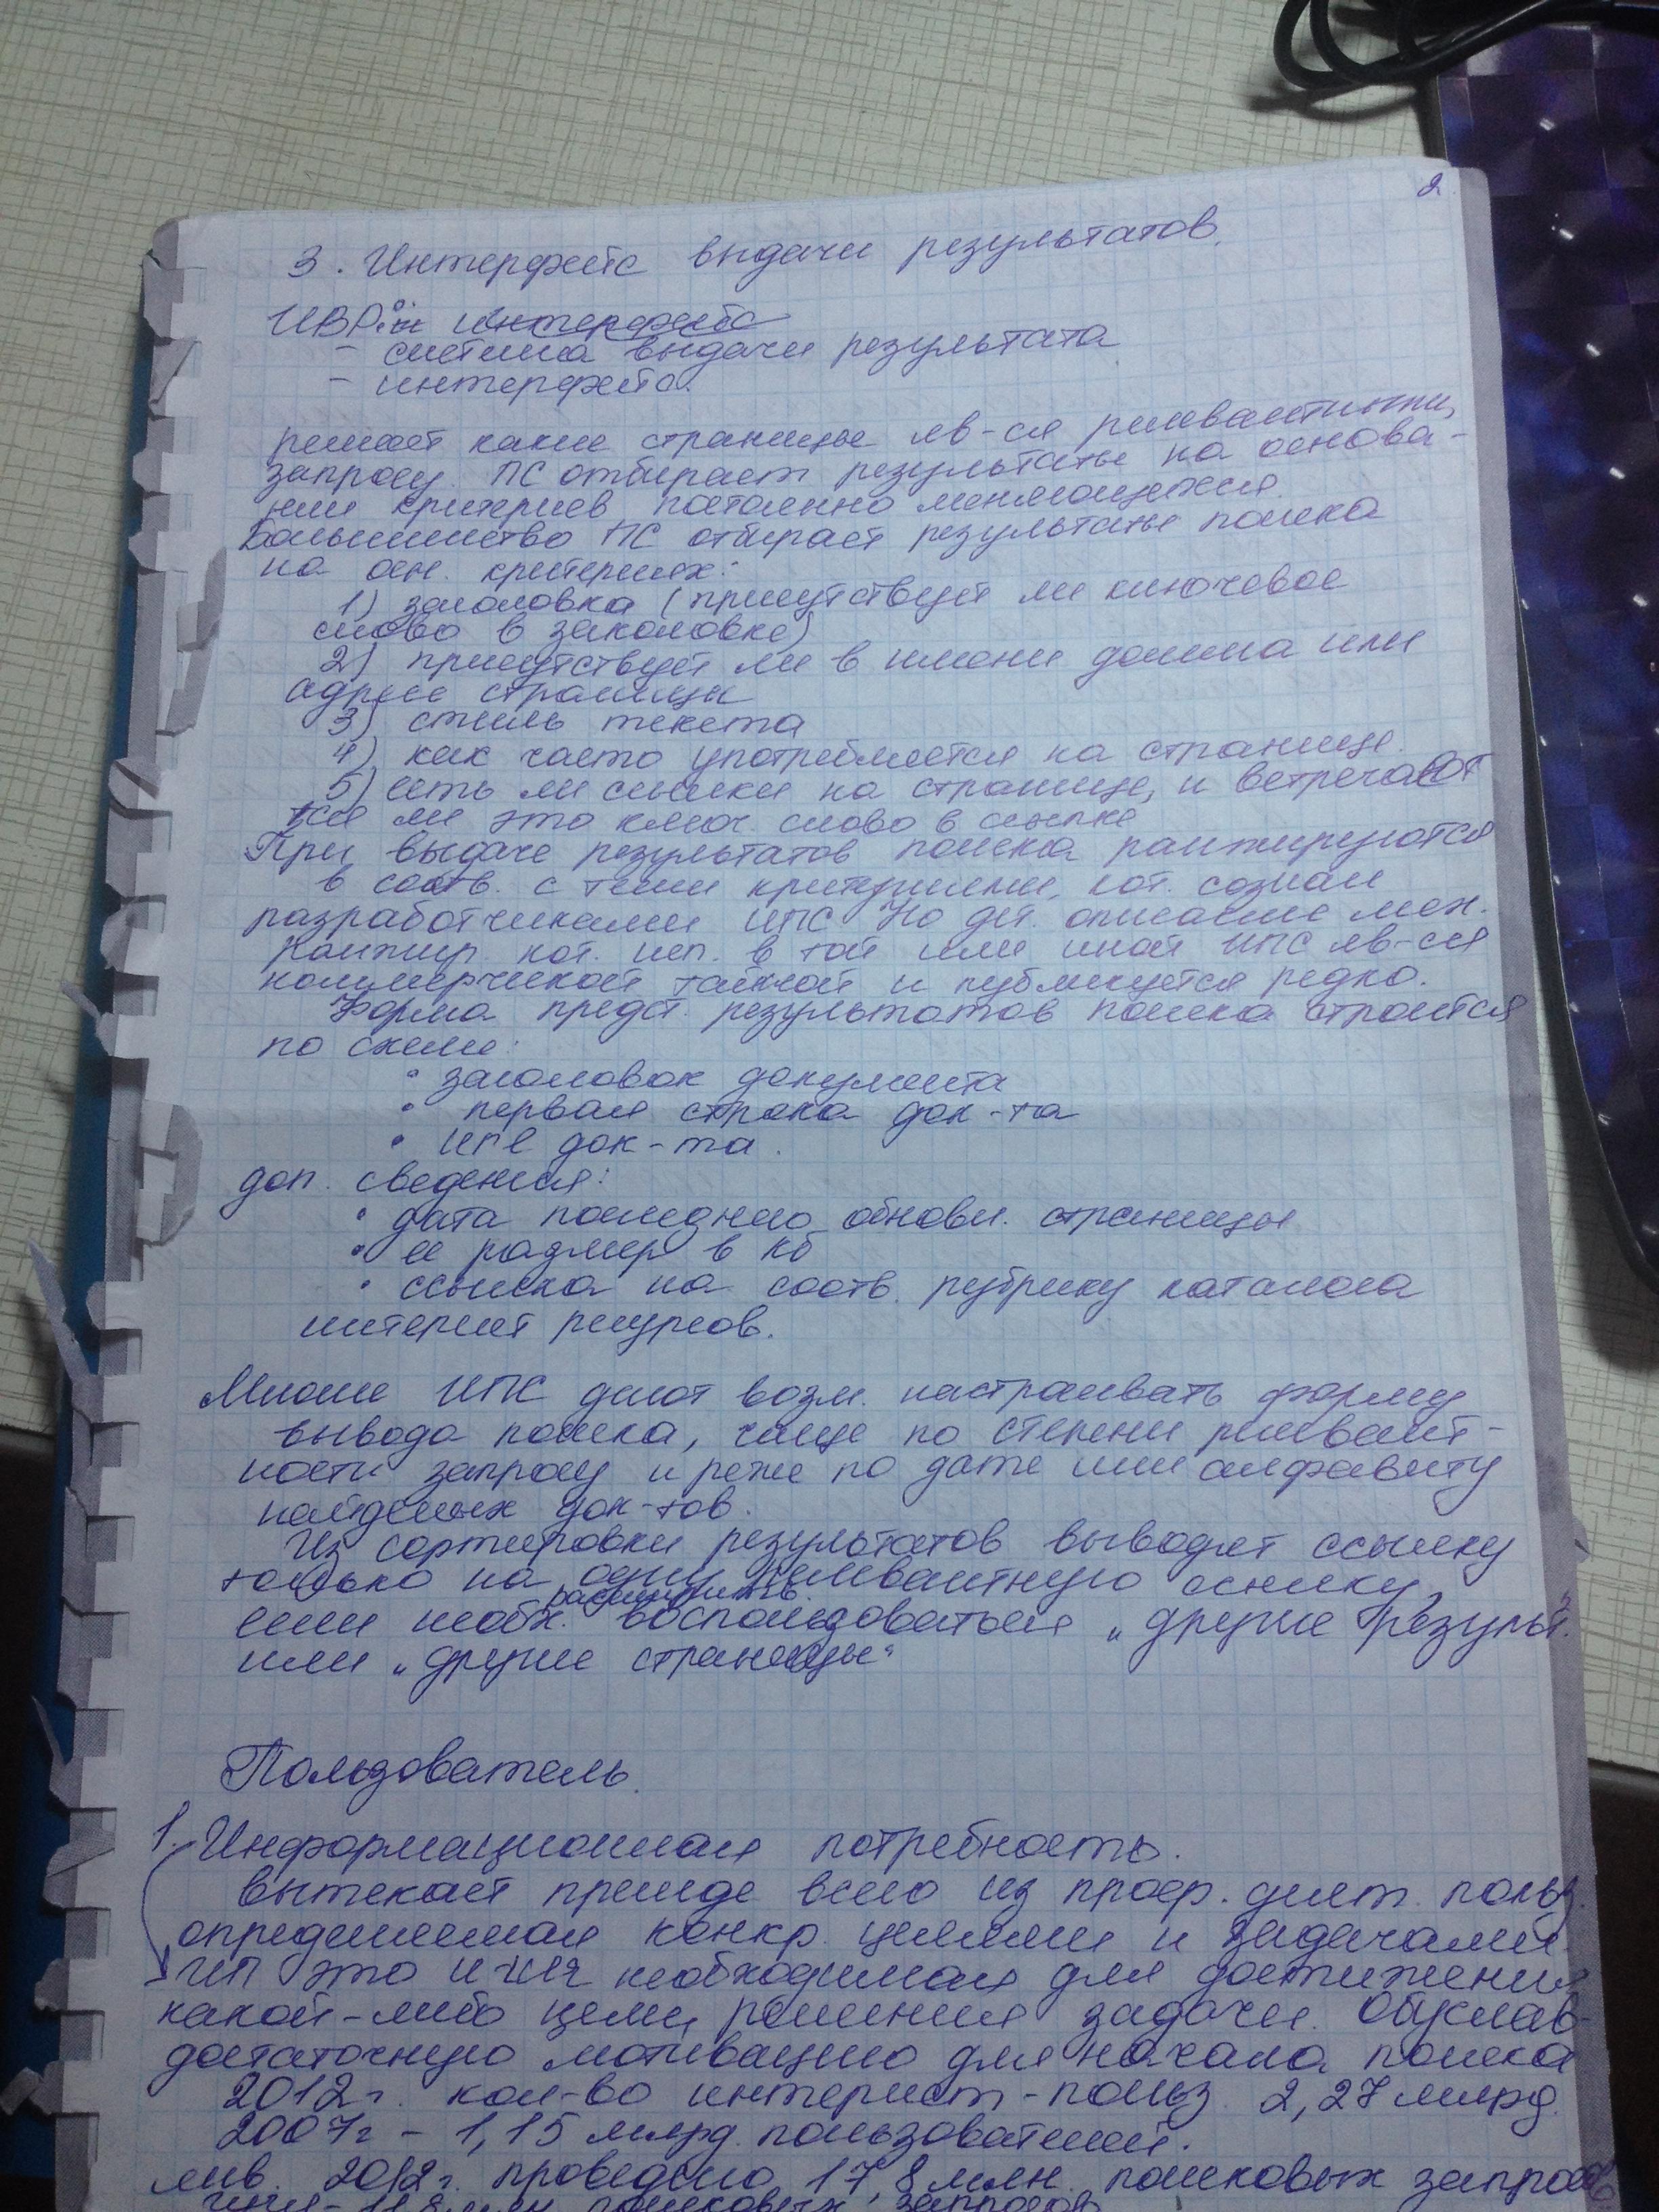 2
3. Интерфейс выдачи результатов.
ИВР: интерфейс
- система выдачи результата
- интерфейс.
решает какие страницы яв-ся релевантными,
запросу. ПС отбирает результаты на основа-
нии критериев постоянно меняющихся.
Большинство ПС отбирает результаты поиска
на осн. критериях:
1) заголовка (присутствует ли ключевое
слово в заголовке)
2) присутствует ли в имени домена или
адресе страницы
3) стиль текста
4) как часто употребляется на странице.
5) есть ли ссылки на странице, и встречает
ся ли это ключ. слово в ссылке
При выдаче результатов поиска ранжируются
в соотв. с теми критериями, кот. созданы
разработчиками ИПС. Но дет. описание мех.
ранжир. кот. исп. в той или иной ИПС яв-ся
коммерческой тайной и публикуется редко.
Форма предст. результатов поиска строится
по схеме:
• заголовок документа
• первая строка док-та
• URL док-та.
доп. сведения:
• дата последнего обновл. страницы
• ее размер в Кб
• ссылка на соотв. рубрику каталога
интернет ресурсов.
Многие ИПС дают возм. настраивать форму
вывода поиска, чаще по степени релевант-
ности запросу и реже по дате или алфавиту
найденных док-тов.
Из сортировки результатов выводят ссылку
только на одну релевантную ссылку,
расширить
если необх. воспользоваться „другие результ.
или „другие страницы"
Пользователь.
1. Информационная потребность.
вытекает прежде всего из проф. деят. польз.
определяемая конкр. целями и задачами.
ИП это и-ция необходимая для достижения
какой-либо цели, решения задачи. Обуслав-
достаточную мотивацию для начала поиска
2012г. кол-во интернет-польз. 2,27 млрд.
2007г - 1,15 млрд. пользователей.
янв. 2012г. проведено 17,8 млн. поисковых запросов
11,8 млн. поисковых запросов